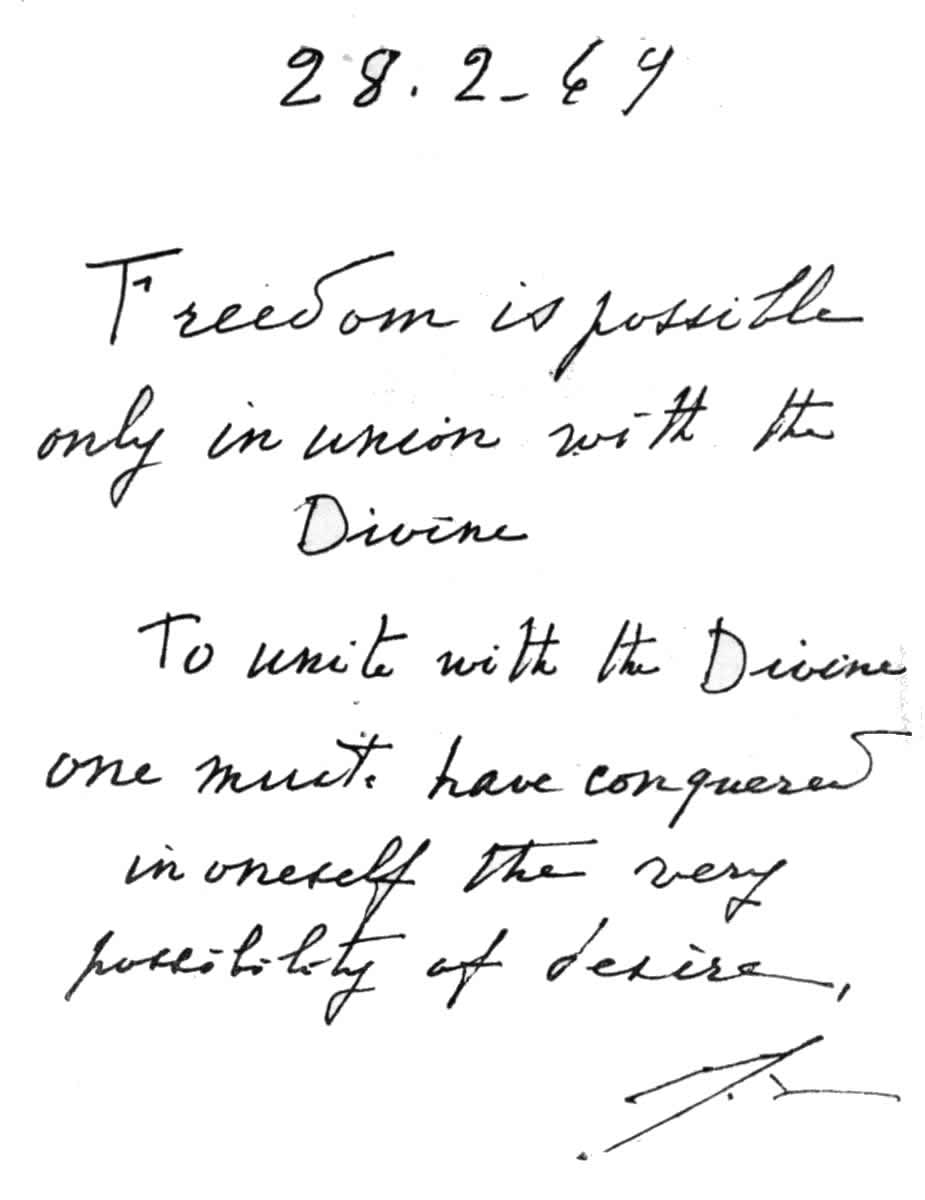 28.2-69
Freedom is possible
only in union with the
Divine
To unite with the Divine
one must have conquered
in oneself the very
possibility of desire.